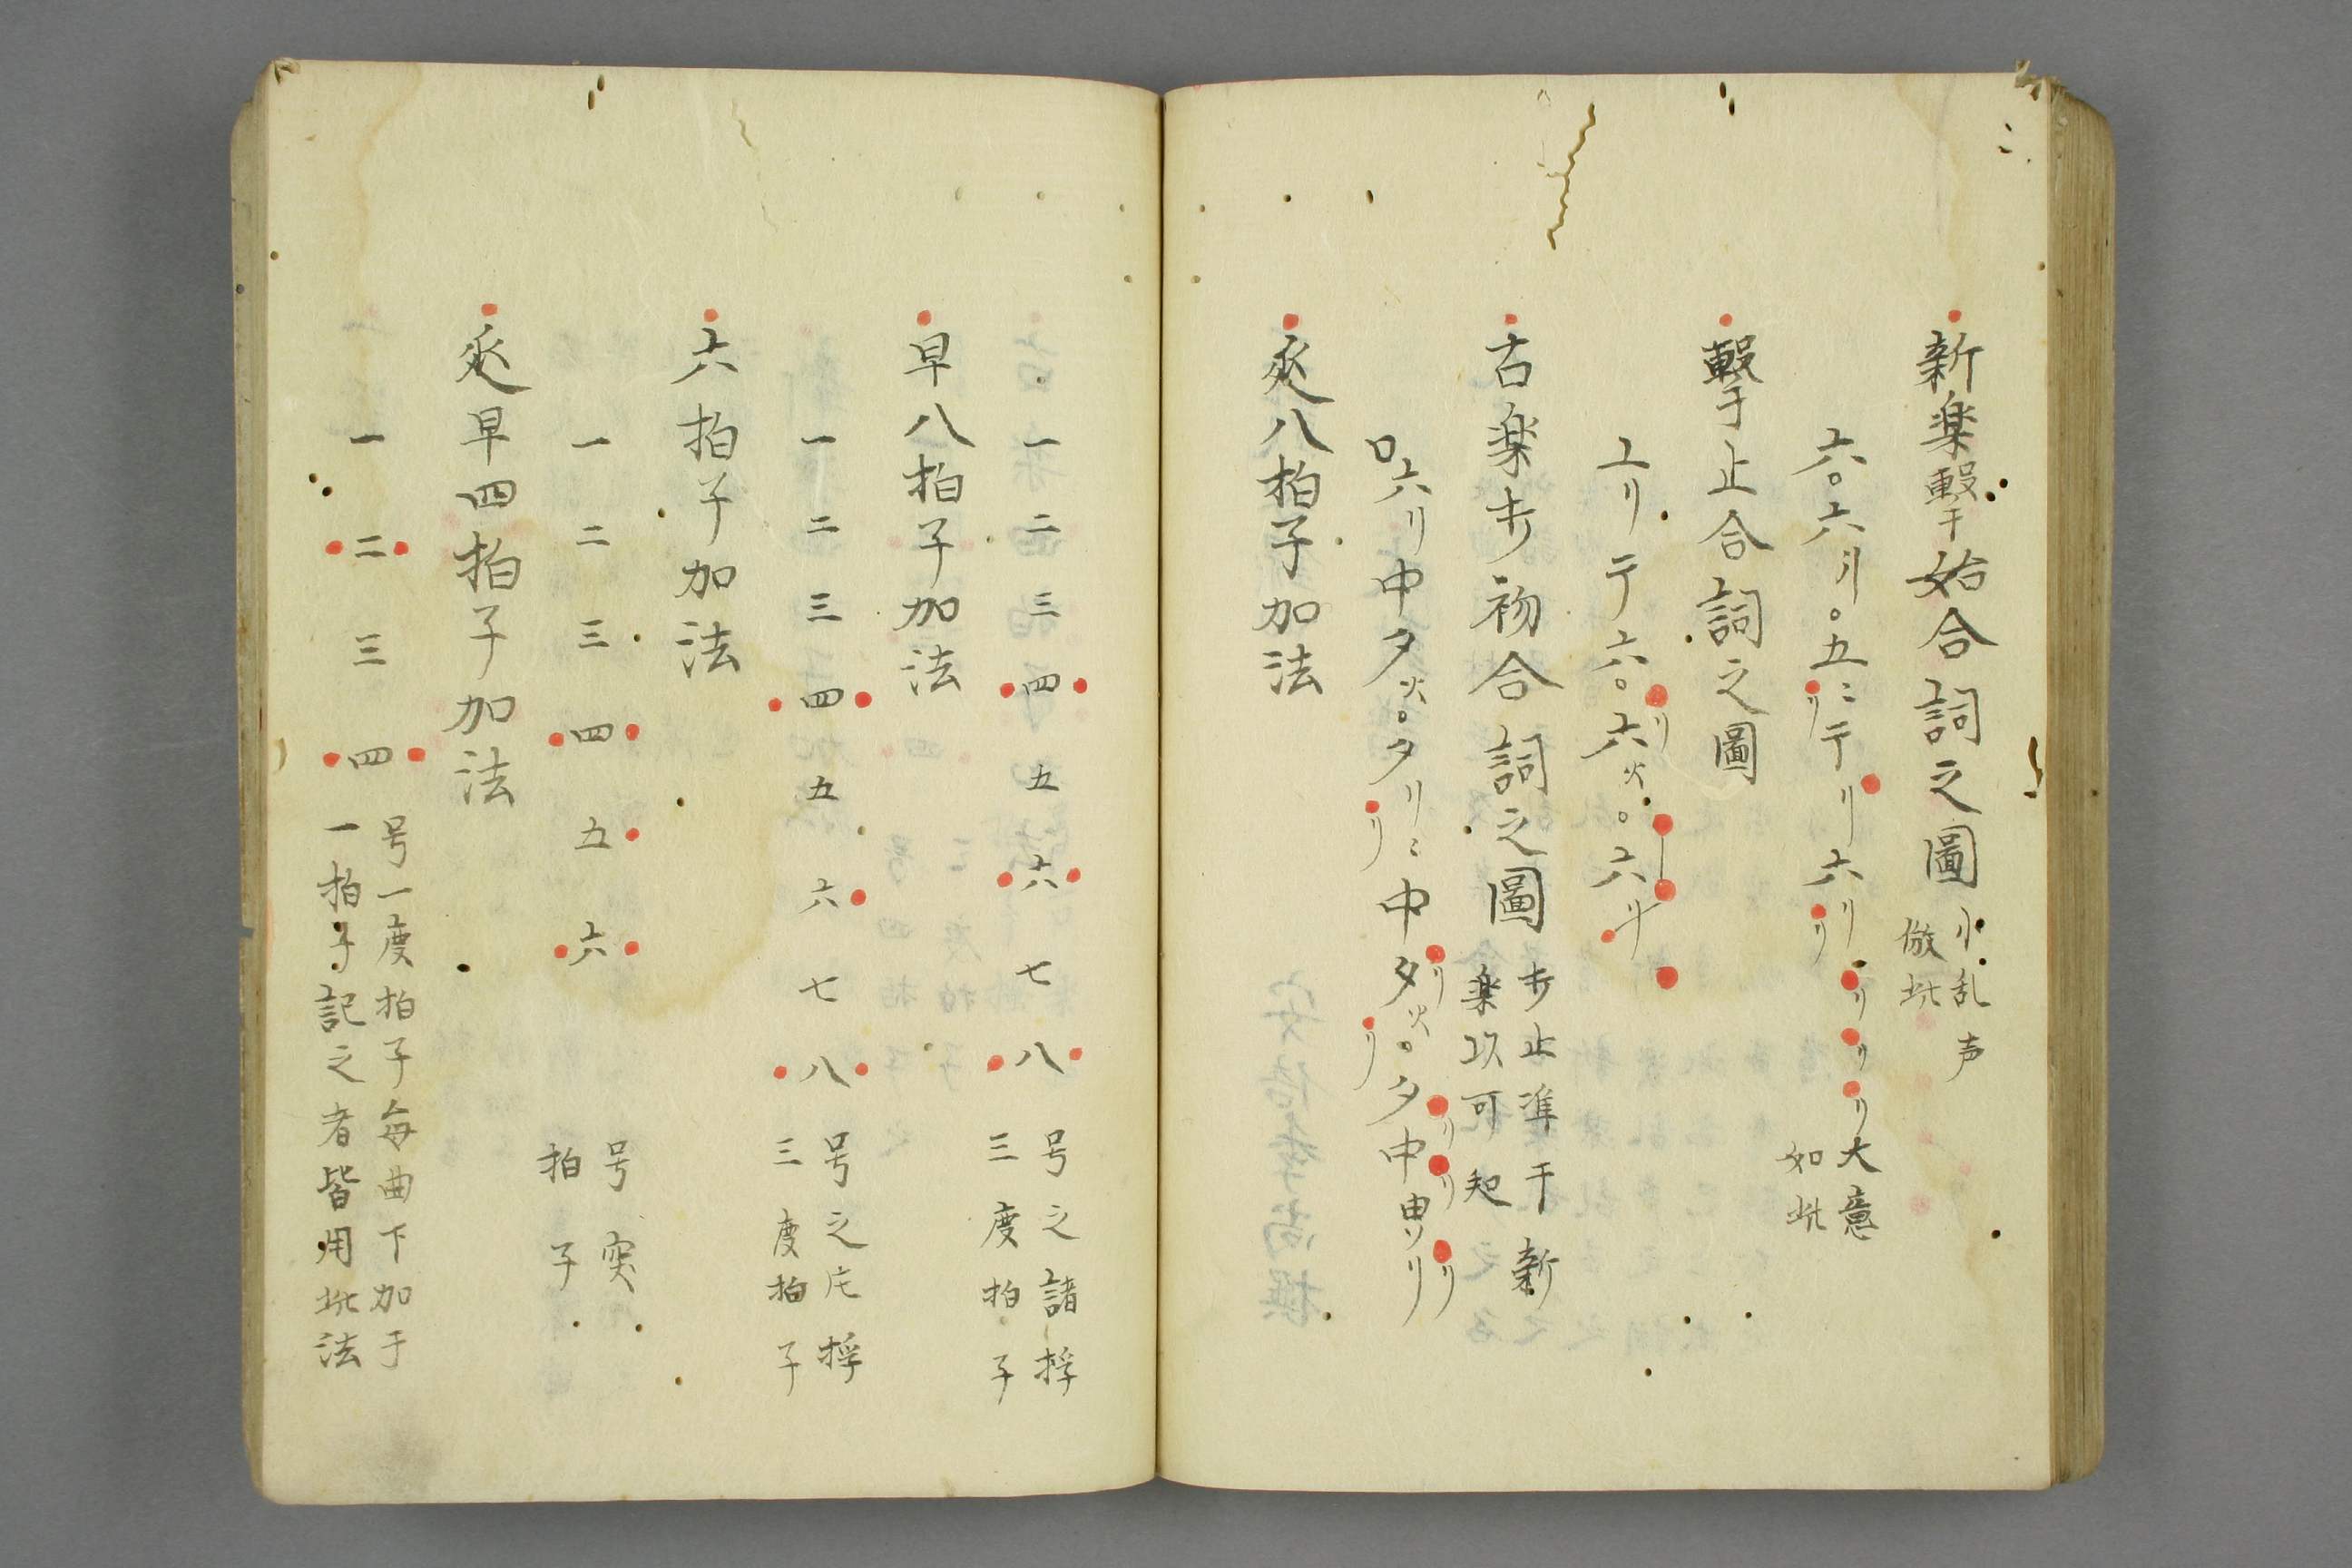 新楽撃始合詞之圖 小乱声
倣此
六〇六リ〇五ニテリ六リリリリ 大意
如此
撃止合詞之圖
エリテ六〇六火〇六リ
古楽步初合詞之圖 步止準于新
楽以可知
口六リ中タ火〇タリニ中タ火〇タ中申ソリ
延八拍子加法
一二三四五六七八 号之諸桴
三度拍子
早八拍子加法
一二三四五六七八 号之片桴
三度拍子
六拍子加法
一二三四五六 号突
拍子
延早四拍子加法
一二三四 号一度拍子每曲下加于
一拍子記之者皆用此法